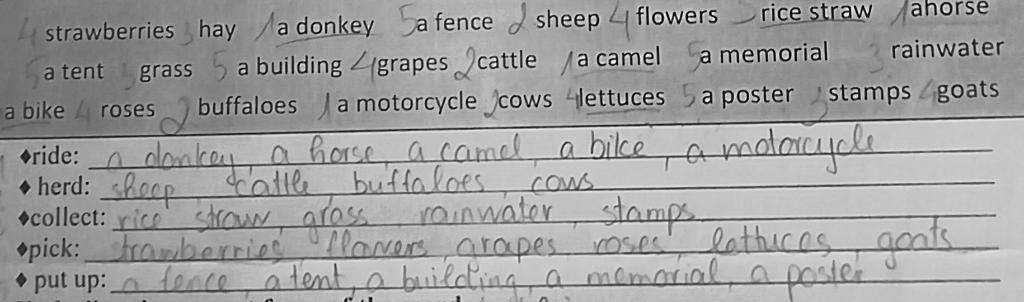 4 strawberries 3 hay 1 a donkey 5 a fence 2 sheep 4 flowers 3 rice straw 1 ahorse
5 a tent 3 grass 5 a building 4 grapes 2 cattle 1 a camel 5 a memorial 3 rainwater
a bike 4 roses 2 buffaloes 1 a motorcycle 2 cows 4 lettuces 5 a poster 3 stamps 4 goats
♦ride: a donkey, a horse, a camel, a bike, a motorcycle
♦ herd: sheep cattle, buffaloes, cows
♦collect: rice straw, grass rainwater, stamps
♦pick: trawberries flowers, grapes roses, lettuces, goats
♦ put up: a fence, a tent, a building, a memorial, a poster